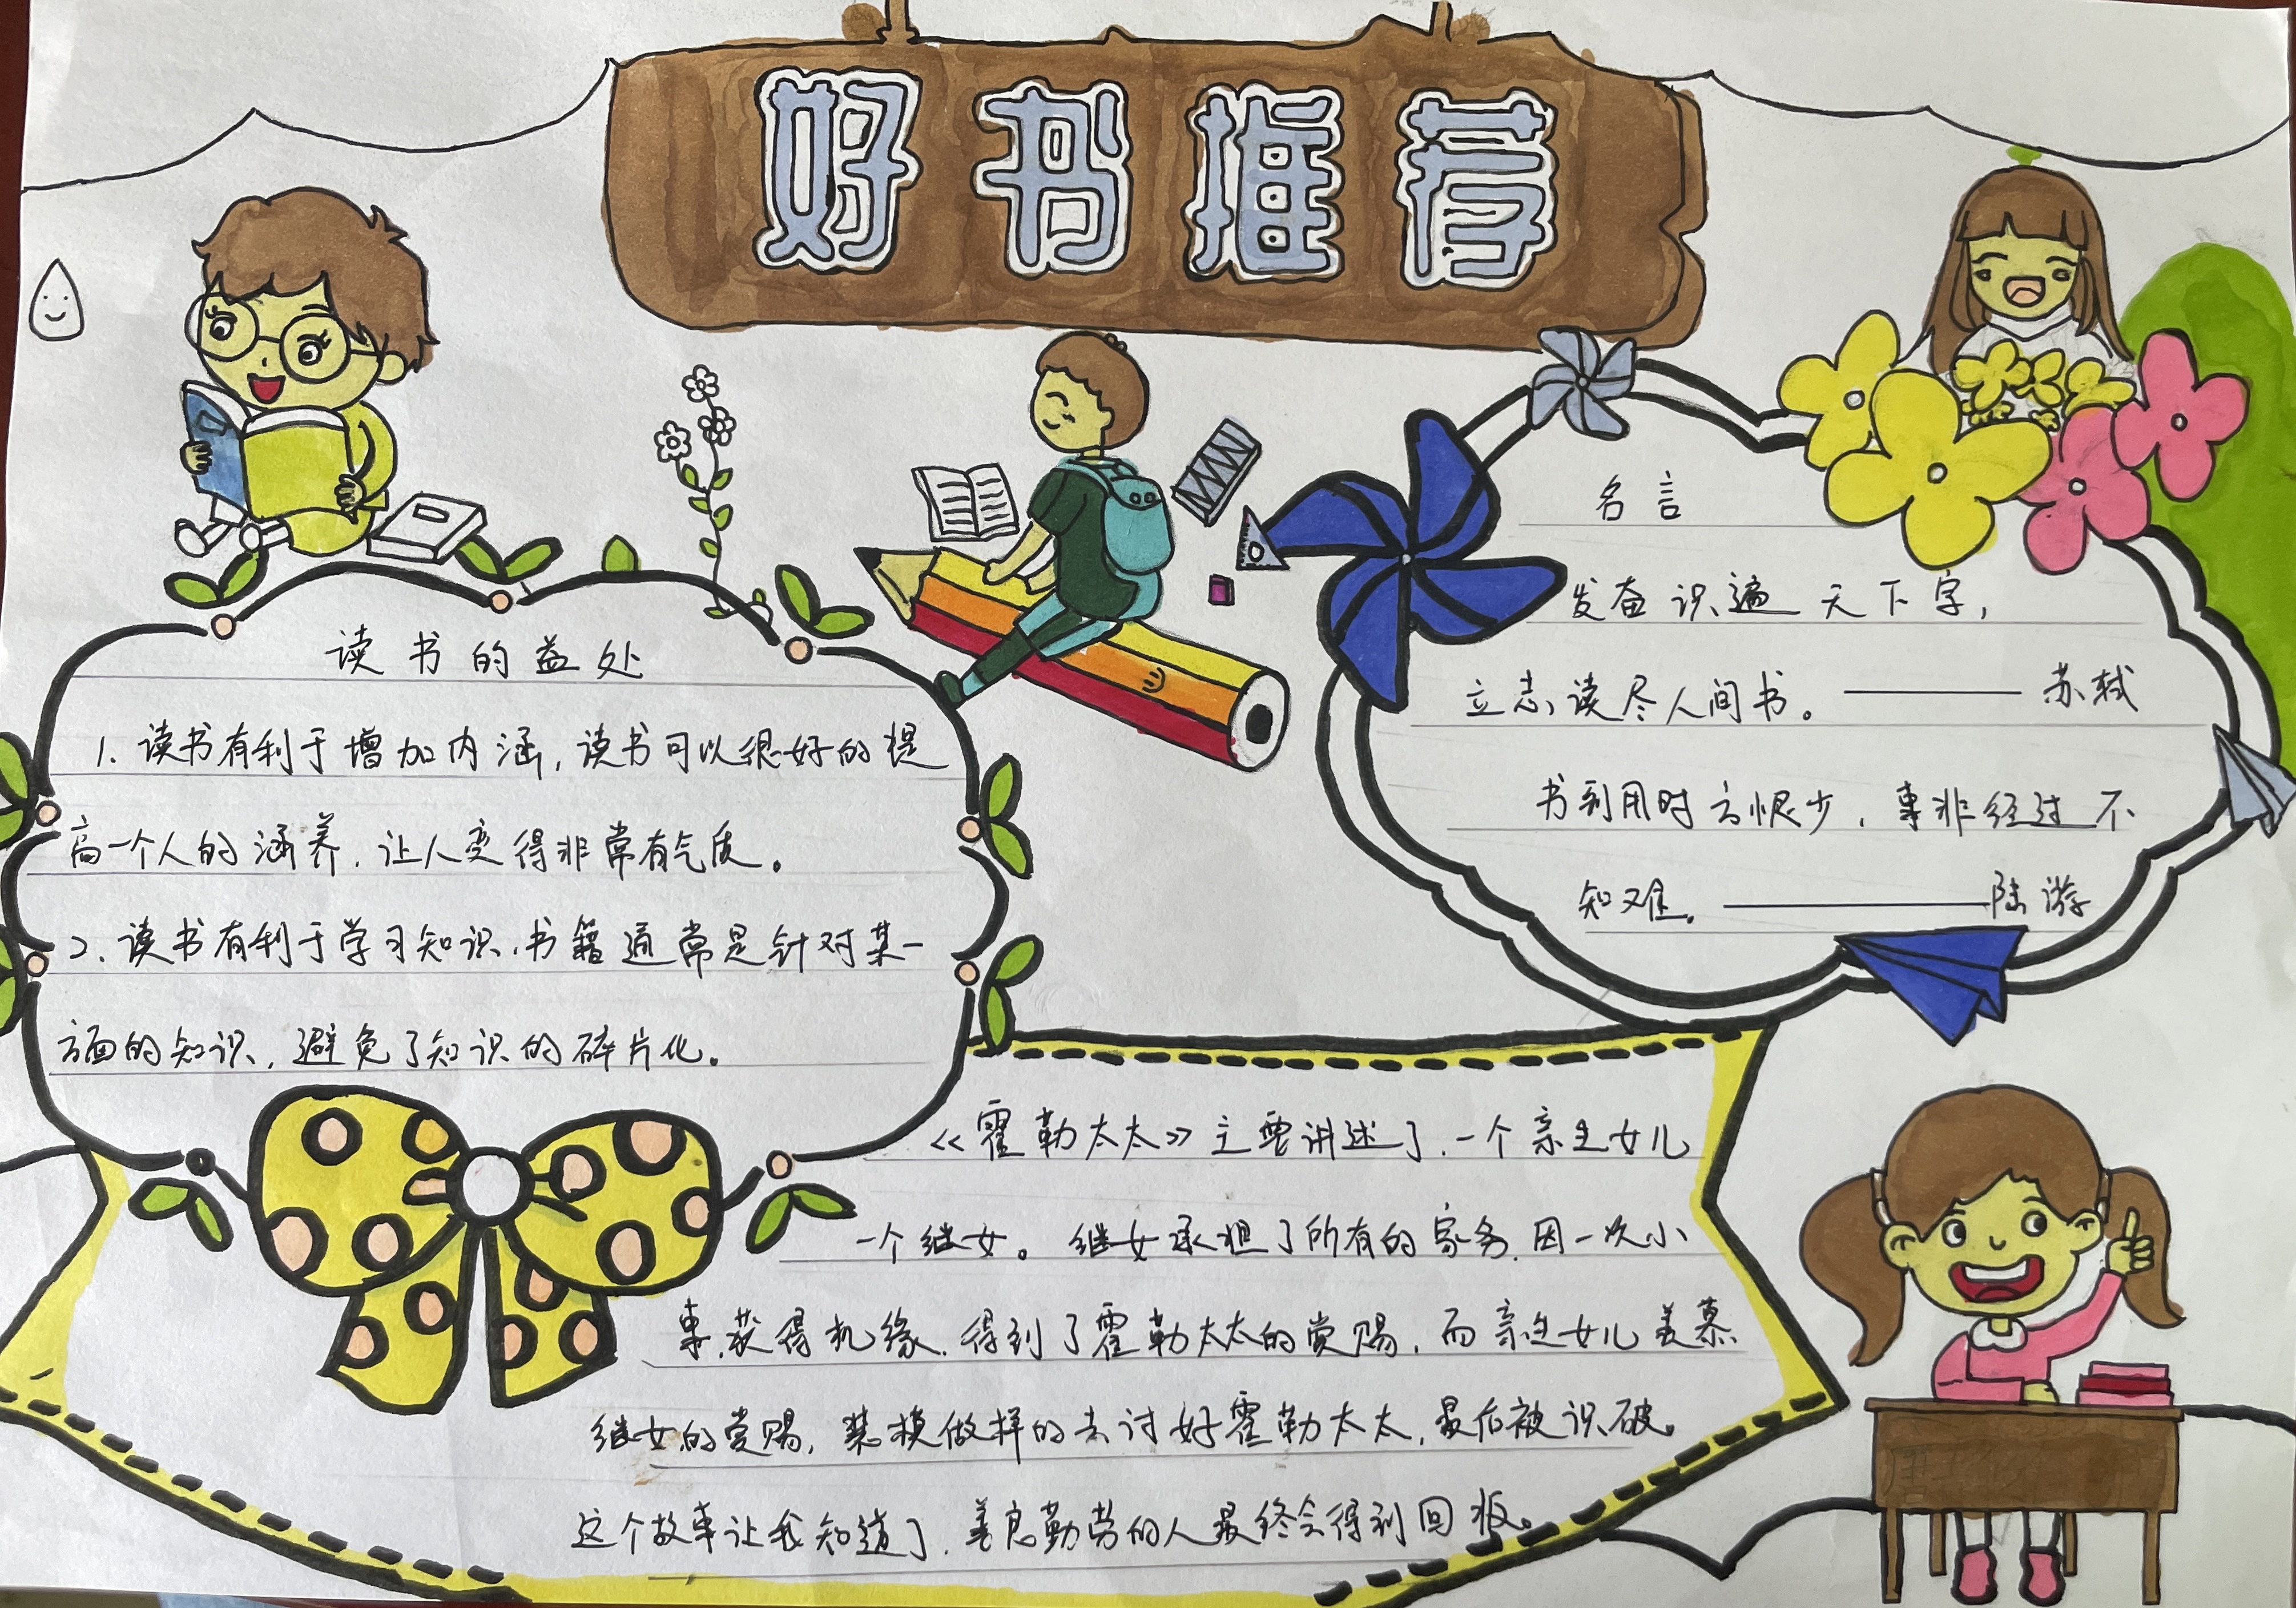 好书推荐
读书的益处
1. 读书有利于增加内涵,读书可以很好的提
高一个人的涵养,让人变得非常有气质。
2. 读书有利于学习知识,书籍通常是针对某一
方面的知识,避免了知识的碎片化。
名言
发奋识遍天下字,
立志读尽人间书。——苏轼
书到用时方恨少,事非经过不
知难。——陆游
《霍勒太太》主要讲述了,一个亲生女儿
一个继女。继女承担了所有的家务,因一次小
事,获得机缘,得到了霍勒太太的赏赐,而亲生女儿羡慕
继女的赏赐,装模做样的去讨好霍勒太太,最后被识破。
这个故事让我知道了,善良勤劳的人最终会得到回报。